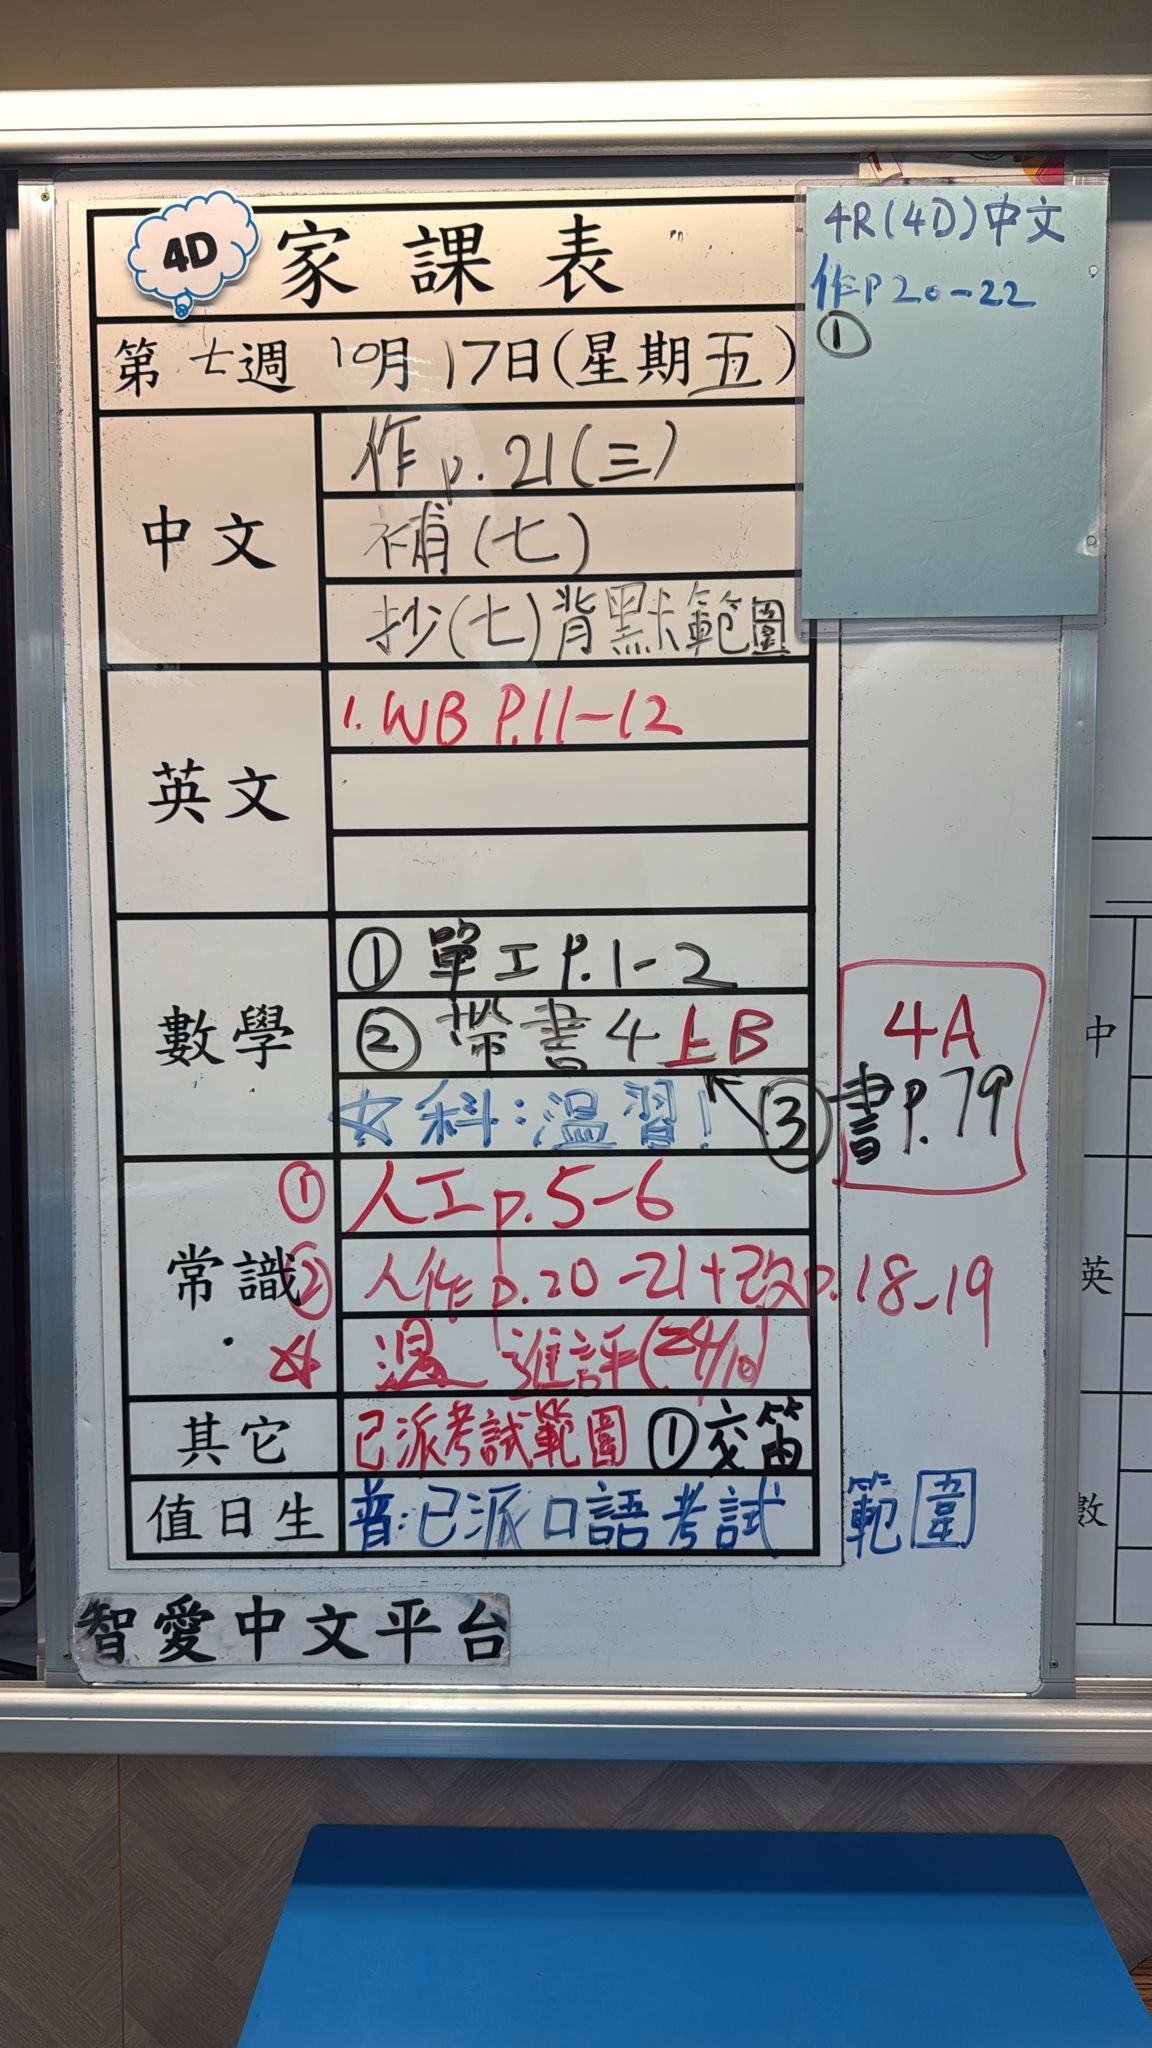 4D 家課表
第七週 10月17日(星期五)
4R(4D)中文
作P20-22
①
中文
作p.21(三)
補(七)
抄(七)背默範圍
英文
1. WB P.11-12
數學
① 單工P.1-2
② 帶書4上B
☆科:溫習!
③
4A
書P.79
常識
① 人工p.5-6
② 人作p.20-21+改p.18-19
☆ 溫 進評(24/10)
其它
已派考試範圍 ①交笛
值日生
普:已派口語考試範圍
智愛中文平台
中
英
數